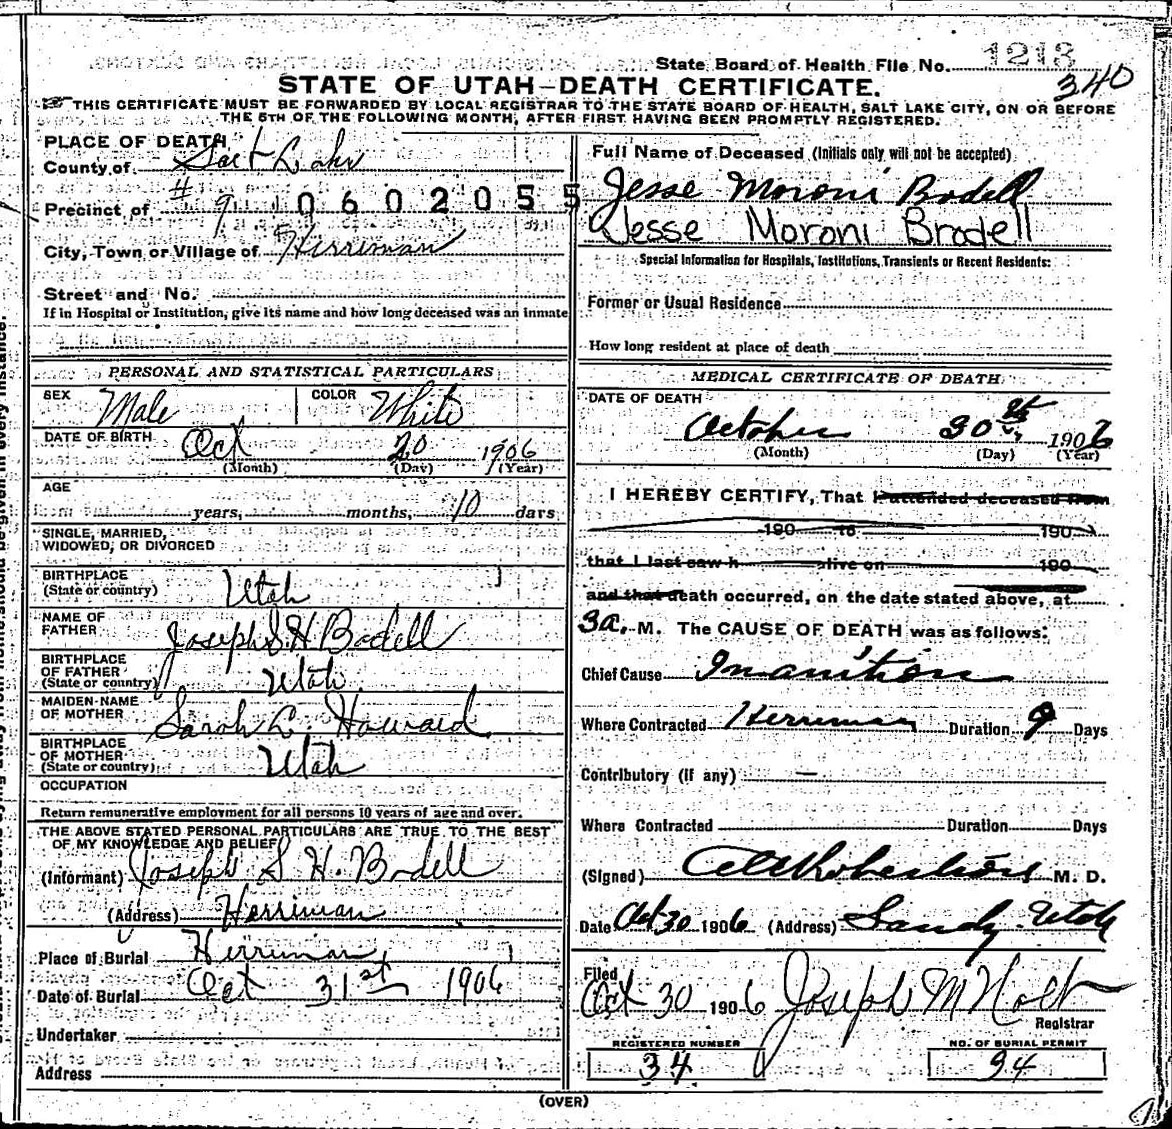 State Board of Health File No. 1213
340
STATE OF UTAH—DEATH CERTIFICATE.
THIS CERTIFICATE MUST BE FORWARDED BY LOCAL REGISTRAR TO THE STATE BOARD OF HEALTH, SALT LAKE CITY, ON OR BEFORE
THE 5TH OF THE FOLLOWING MONTH, AFTER FIRST HAVING BEEN PROMPTLY REGISTERED.
PLACE OF DEATH
County of Salt Lake
Precinct of # 9
0602055
City, Town or Village of Herriman
Street and No.
If in Hospital or Institution, give its name and how long deceased was an inmate
Full Name of Deceased (Initials only will not be accepted)
Jesse Moroni Bodell
Jesse Moroni Brodell
Special Information for Hospitals, Institutions, Transients or Recent Residents:
Former or Usual Residence
How long resident at place of death
PERSONAL AND STATISTICAL PARTICULARS
SEX Male COLOR White
DATE OF BIRTH Oct 20 1906
(Month) (Day) (Year)
AGE
years, months, 10 days
SINGLE, MARRIED,
WIDOWED, OR DIVORCED
BIRTHPLACE
(State or country) Utah
NAME OF
FATHER Joseph S H Bodell
BIRTHPLACE
OF FATHER
(State or country) Utah
MAIDEN NAME
OF MOTHER Sarah L Howard
BIRTHPLACE
OF MOTHER
(State or country) Utah
OCCUPATION
Return remunerative employment for all persons 10 years of age and over.
THE ABOVE STATED PERSONAL PARTICULARS ARE TRUE TO THE BEST
OF MY KNOWLEDGE AND BELIEF
(Informant) Joseph S H. Bodell
(Address) Herriman
Place of Burial Herriman
Date of Burial Oct 31st 1906
Undertaker
Address
MEDICAL CERTIFICATE OF DEATH
DATE OF DEATH
October 30th 1906
(Month) (Day) (Year)
I HEREBY CERTIFY, That I attended deceased from
190 to 190
that I last saw h alive on 190
and that death occurred, on the date stated above, at
3a. M. The CAUSE OF DEATH was as follows:
Chief Cause Inanition
Where Contracted Herriman Duration 9 Days
Contributory (if any) —
Where Contracted Duration Days
(Signed) Robertson M. D.
Date Oct 30 1906 (Address) Sandy Utah
Filed
Oct 30 1906 Joseph M Holt
Registrar
REGISTERED NUMBER
34
NO. OF BURIAL PERMIT
94
(OVER)